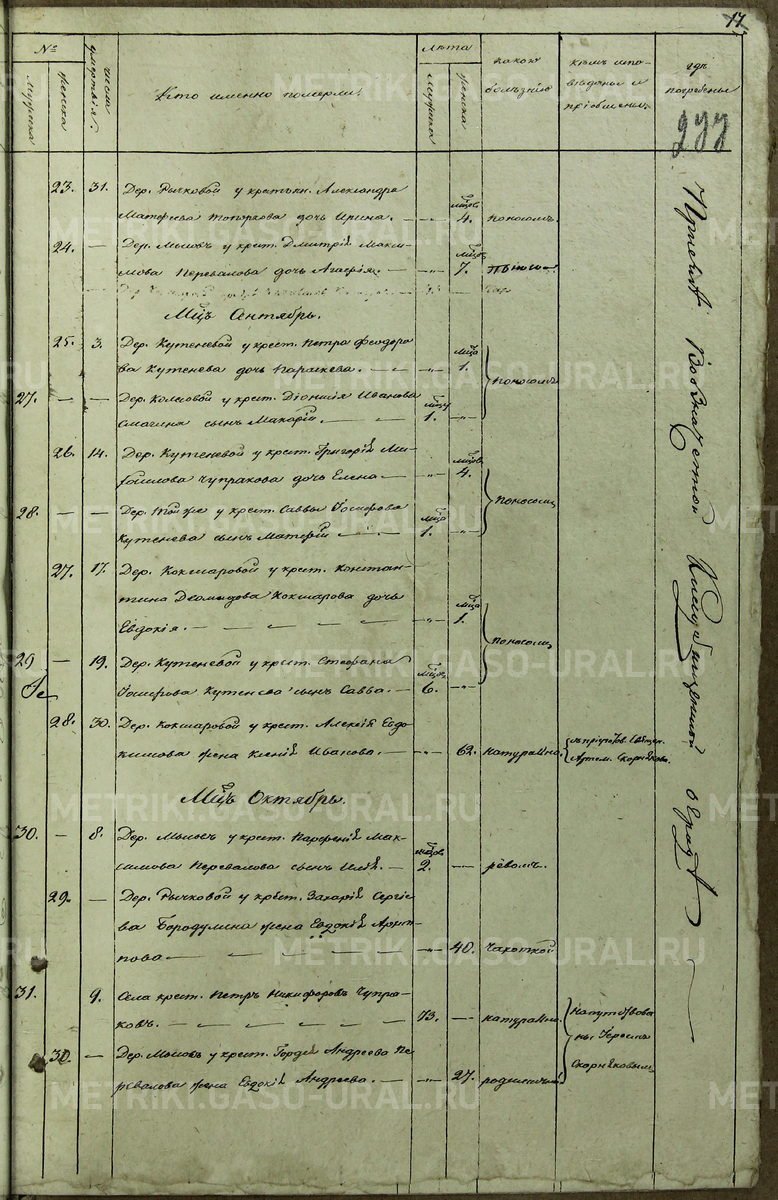 17
№
Мужска
женска
числа
умертвія.
Кто именно померли:
Лѣта
Мужска
женска
какою
болѣзнію
кѣмъ испо-
вѣданы и
пріобщены.
гдѣ
погребены
277
23. 31. Дер. Рычковой у крестьян. Александра
Матфеева Топоркова дочь Ирина. — мцов 4. поносомъ.
24. — Дер. Мысовъ у крест. Дмитрія Макси-
мова Перевалова дочь Агафія. — мцов 7.
Мцъ Сентябрь.
25. 3. Дер. Кутеневой у крест. Петра Феодоро
ва Кутенева дочь Параскева. — мца 1. поносомъ
27. — — Дер. Колесовой у крест. Діонисія Иванова
сынъ Макарій. — мца 1.
26. 14. Дер. Кутеневой у крест. Григорія Ми-
хаилова Чупракова дочь Елена — мцов 4. поносомъ
28. — — Дер. Той же у крест. Саввы Іосифова
Кутенева сынъ Матфій — мца 1.
27. 17. Дер. Кокшаровой у крест. Констан-
тина Диомидова Кокшарова дочь
Евдокія. — мца 1. поносомъ
29 — 19. Дер. Кутеневой у крест. Стефана
Іосифова Кутенева сынъ Савва. — мцов 6.
28. 30. Дер. Кокшаровой у крест. Алексія Евдо
кимова жена Ксенія Иванова. — 62. натурально. Священ.
Артем. Скорняковъ.
Мцъ Октябрь.
30. — 8. Дер. Мысовъ у крест. Парфенія Мак-
симова Перевалова сынъ Илія. — мцов 2. ревомъ.
29. — Дер. Рычковой у крест. Захарія Сергіе
ва Бородулина жена Евдокія Архип-
пова — 40. чахоткой
31. 9. Села крест. Петръ Никифоровъ Чупра-
ковъ. — 73. — натурально напутствова
ны Іереемъ
Скорняковымъ
30. — Дер. Мысовъ у крест. Гордія Андреева Пе
ревалова жена Евдокія Андреева. — 27. родильной
На приходскомъ
METRIKI.GASO-URAL.RU